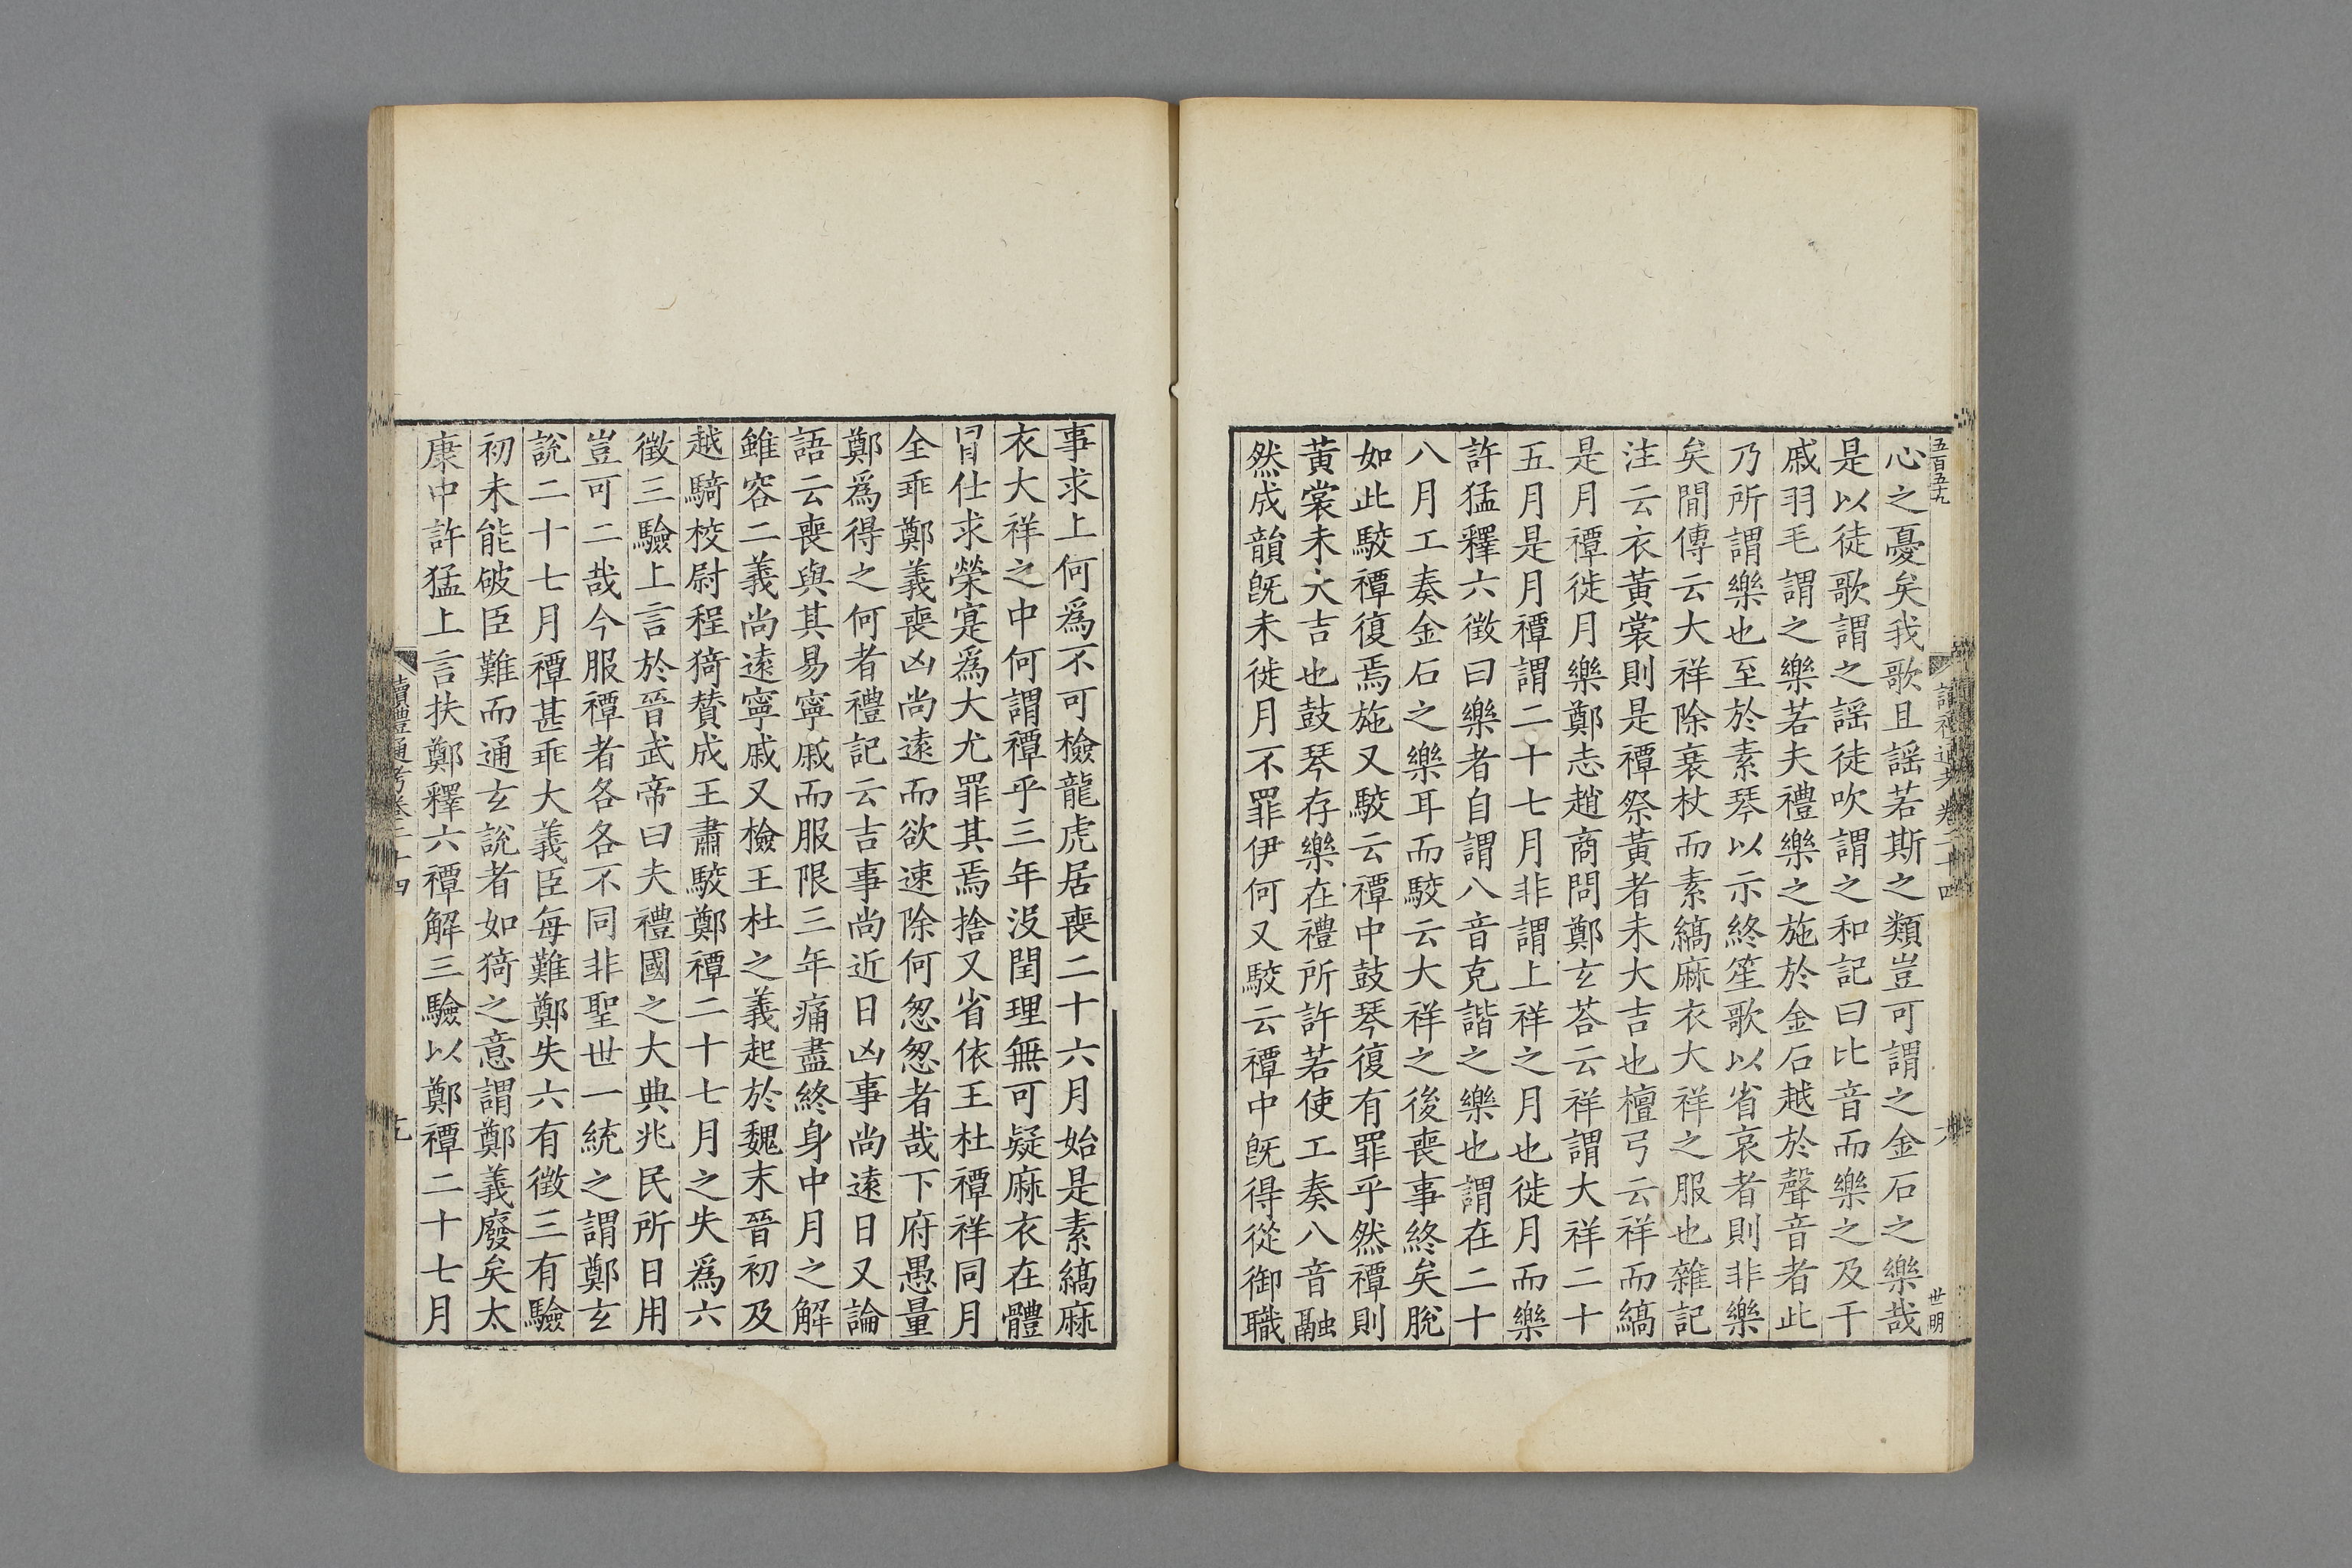 五百五十九
心之憂矣我歌且謡若斯之類豈可謂之金石之樂哉
是以徒歌謂之謡徒吹謂之和記曰比音而樂之及干
戚羽毛謂之樂若夫禮樂之施於金石越於聲音者此
乃所謂樂也至於素琴以示終笙歌以省哀者則非樂
矣間傳云大祥除衰杖而素縞麻衣大祥之服也雜記
注云衣黃裳則是禫祭黃者未大吉也檀弓云祥而縞
是月禫徙月樂鄭志趙商問鄭玄荅云祥謂大祥二十
五月是月禫謂二十七月非謂上祥之月也徙月而樂
許猛釋六徵曰樂者自謂八音克諧之樂也謂在二十
八月工奏金石之樂耳而駮云大祥之後喪事終矣脫
如此駮禫復焉施又駮云禫中鼓琴復有罪乎然禫則
黃裳未大吉也鼓琴存樂在禮所許若使工奏八音融
然成韻旣未徙月不罪伊何又駮云禫中旣得從御職
讀禮通考卷二十四
世明
事求上何爲不可檢龍虎居喪二十六月始是素縞麻
衣大祥之中何謂禫乎三年沒閏理無可疑麻衣在體
冒仕求榮寔爲大尤罪其焉捨又省依王杜禫祥同月
全乖鄭義喪凶尚遠而欲速除何怱怱者哉下府愚量
鄭爲得之何者禮記云吉事尚近日凶事尚遠日又論
語云喪與其易寧戚而服限三年痛盡終身中月之解
雖容二義尚遠寧戚又檢王杜之義起於魏末晉初及
越騎校尉程猗贊成王肅駮鄭禫二十七月之失爲六
徵三驗上言於晉武帝曰夫禮國之大典兆民所日用
豈可二哉今服禫者各各不同非聖世一統之謂鄭玄
說二十七月禫甚乖大義臣每難鄭失六有徵三有驗
初未能破臣難而通玄說者如猗之意謂鄭義廢矣太
康中許猛上言扶鄭釋六禫解三驗以鄭禫二十七月
讀禮通考卷二十四